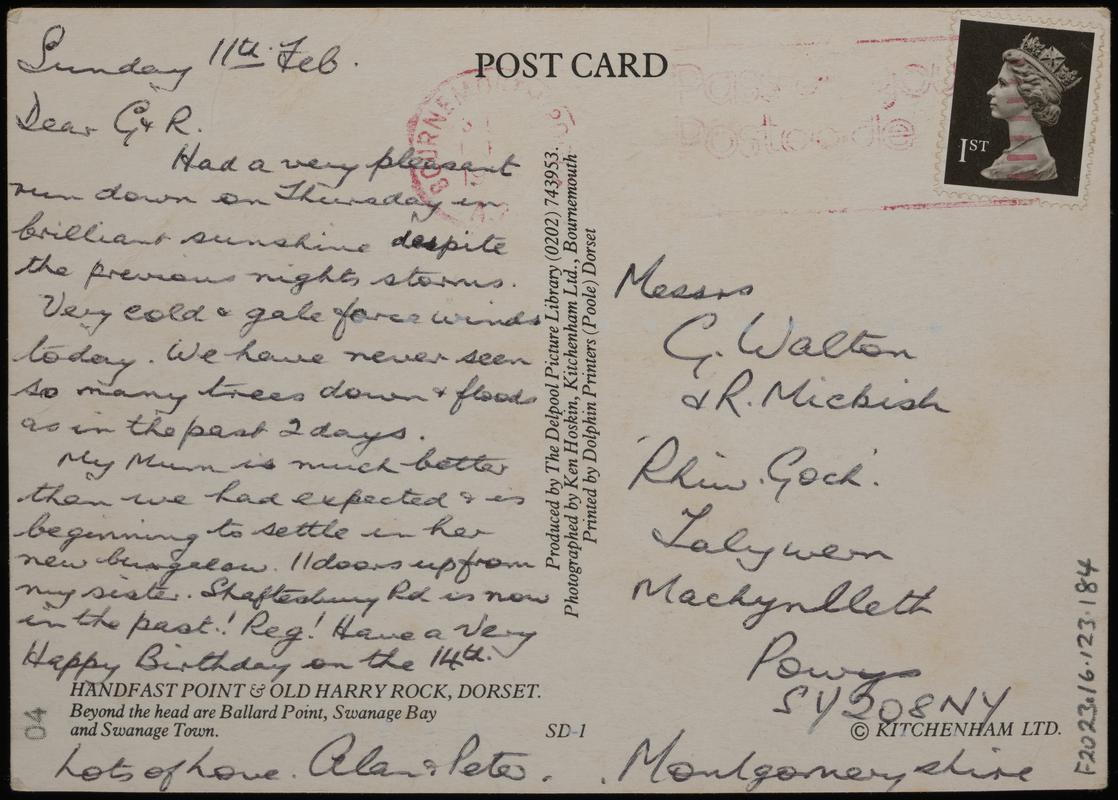 POST CARD
Sunday 11th Feb.
Dear G & R.
Had a very pleasant
run down on Thursday in
brilliant sunshine despite
the previous nights storms.
Very cold & gale force winds
today. We have never seen
so many trees down & floods
as in the past 2 days.
My Mum is much better
than we had expected & is
beginning to settle in her
new bungalow. 11 doors up from
my sister. Shaftesbury Rd is now
in the past.! Reg! Have a Very
Happy Birthday on the 14th.
HANDFAST POINT & OLD HARRY ROCK, DORSET.
Beyond the head are Ballard Point, Swanage Bay
and Swanage Town.
SD-1
Lots of Love. Alan & Peter.
04
Produced by The Delpool Picture Library (0202) 743953.
Photographed by Ken Hoskin, Kitchenham Ltd., Bournemouth
Printed by Dolphin Printers (Poole) Dorset
BOURNEMOUTH
Postcode
1ST
Messrs
G. Walton
& R. Mickish
'Rhiw. Goch'.
Talywern
Machynlleth
Powys
SY20 8NY
© KITCHENHAM LTD.
Montgomeryshire
F2023.16.123.184